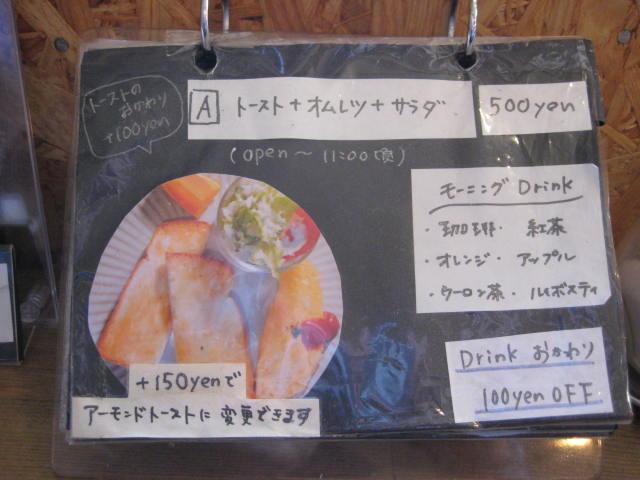 トーストの
おかわり
+100yen
A トースト+オムレツ+サラダ
500yen
(open～11:00頃)
モーニング Drink
・珈琲・ 紅茶
・オレンジ・ アップル
・ウーロン茶・ ルイボスティ
Drink おかわり
100yen OFF
+150yenで
アーモンドトーストに変更できます